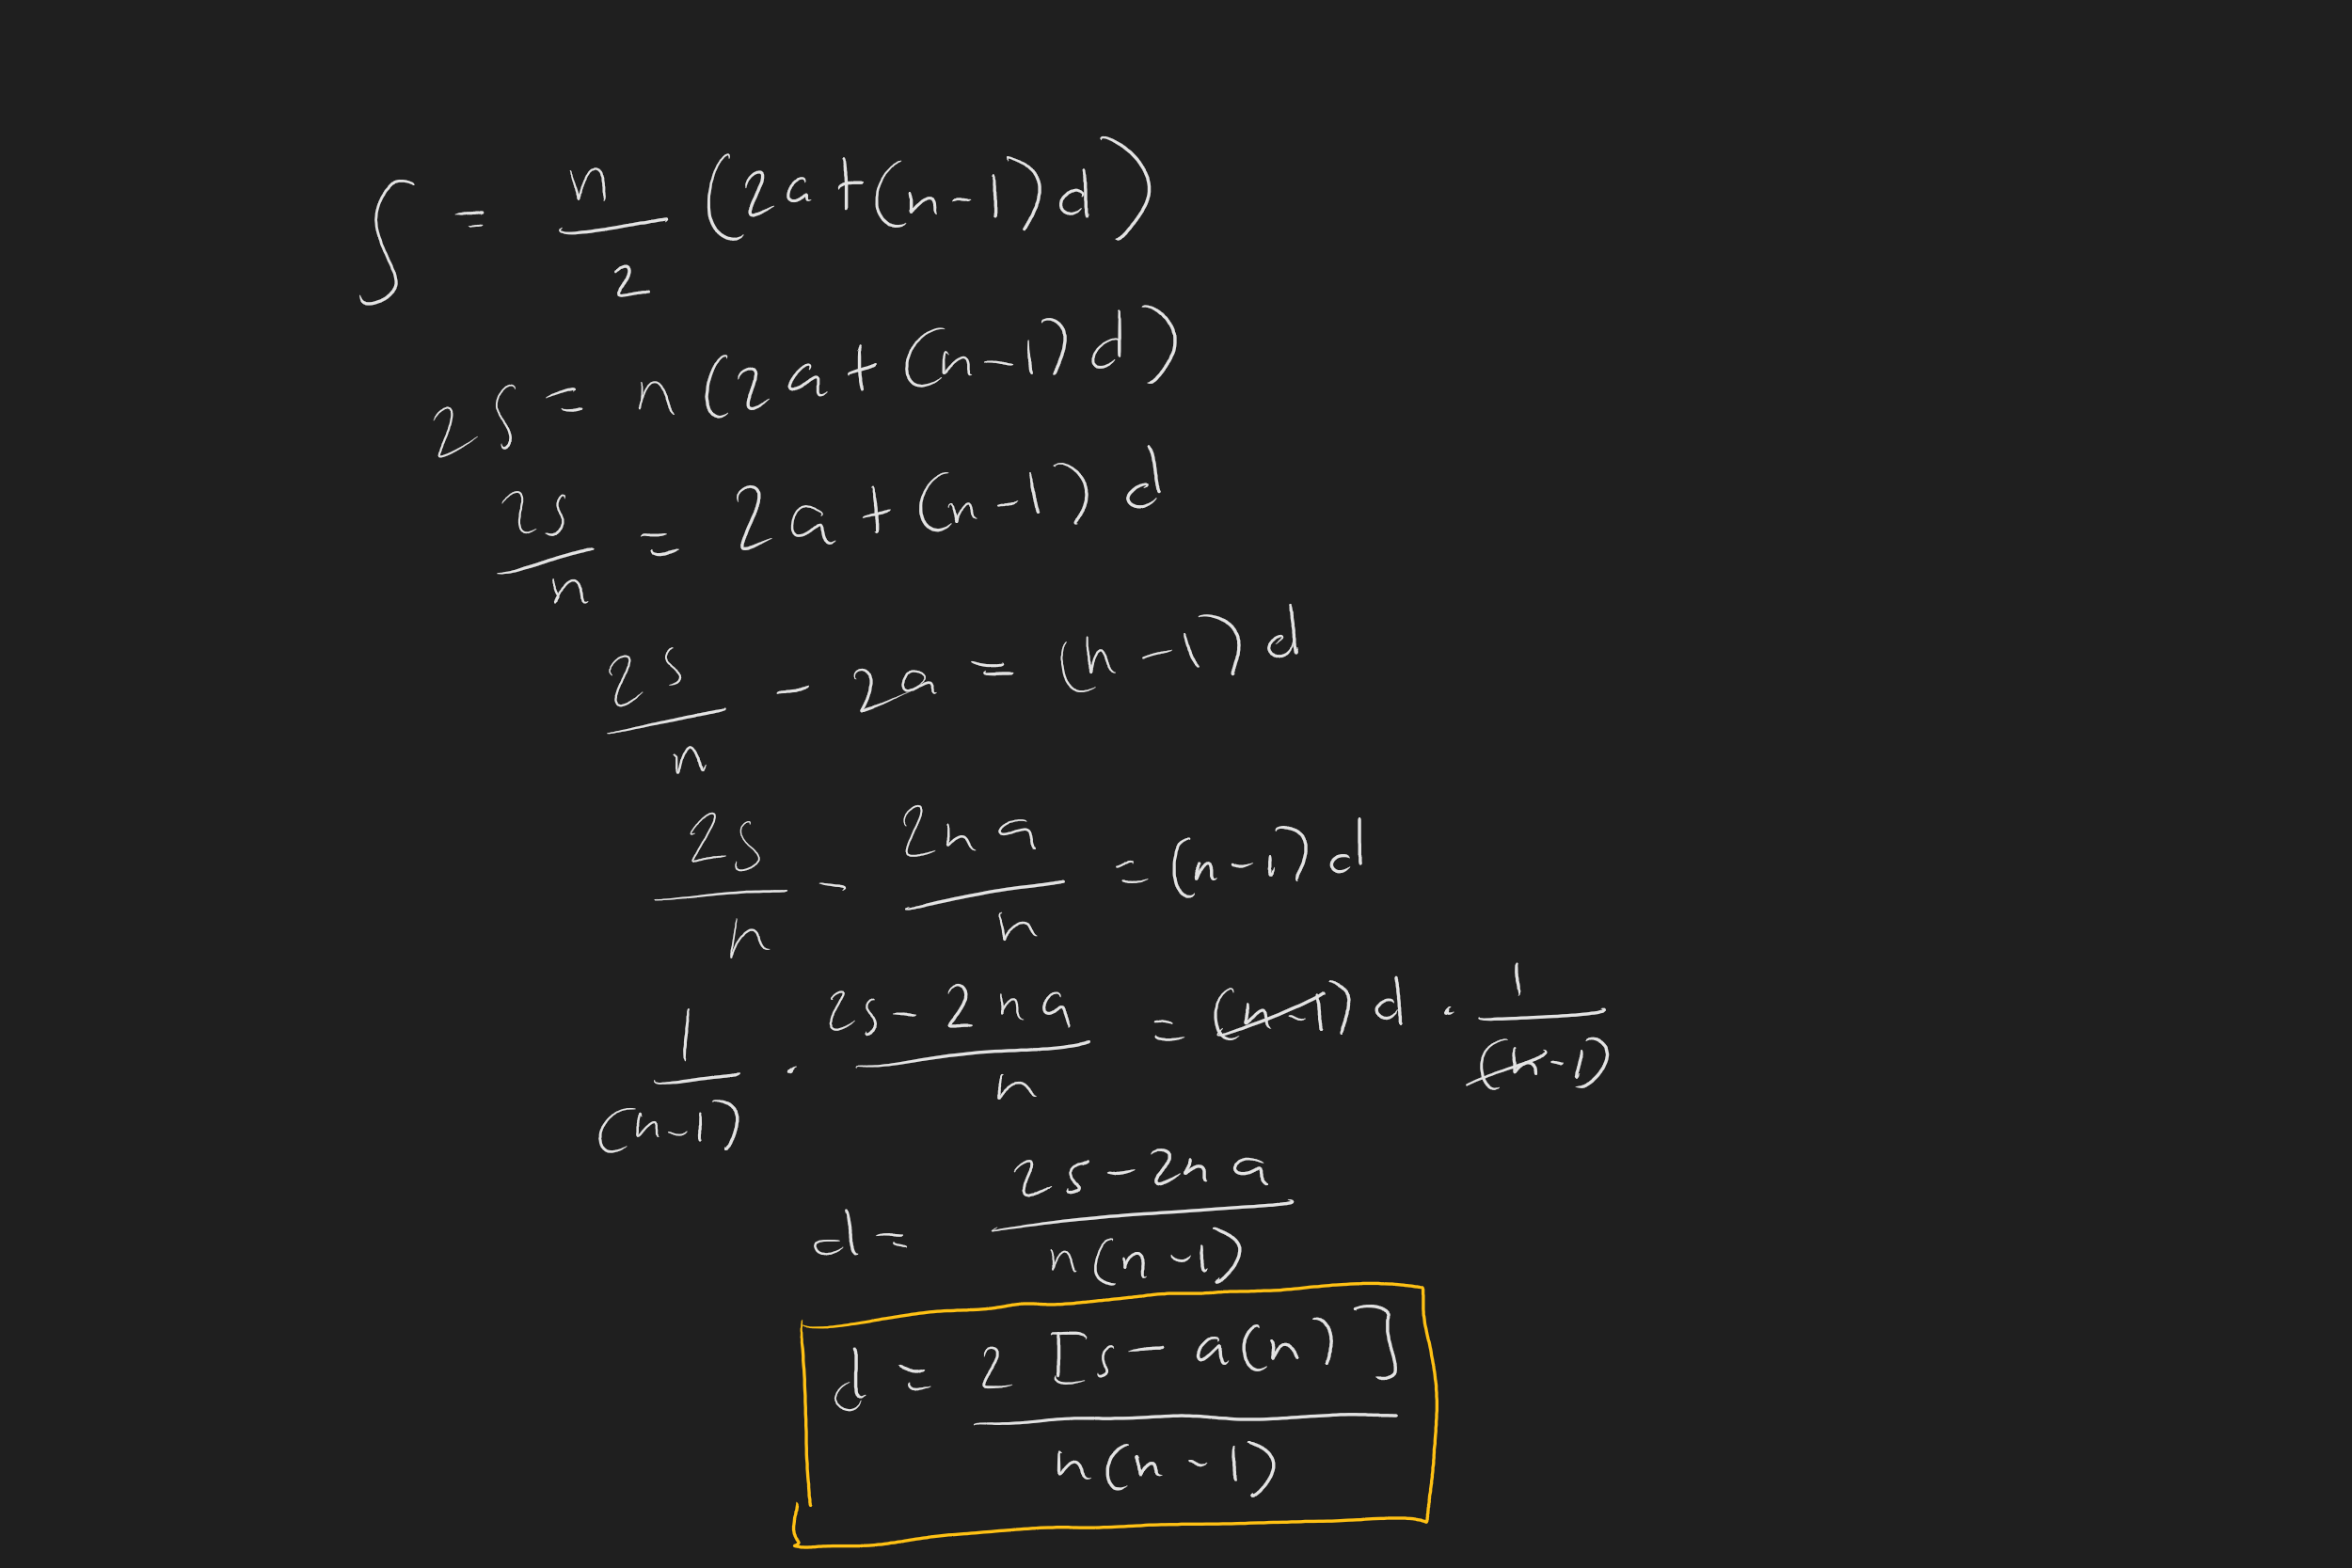 S = n/2 (2a+(n-1)d)
2S = n(2a+(n-1)d)
2s/n = 2a+(n-1)d
2s/n - 2a = (n-1)d
2s/n - 2na/n = (n-1)d
1/(n-1) · (2s-2na)/n = (n-1)d · 1/(n-1)
d = (2s-2na)/(n(n-1))
d = 2[s-a(n)]/(n(n-1))